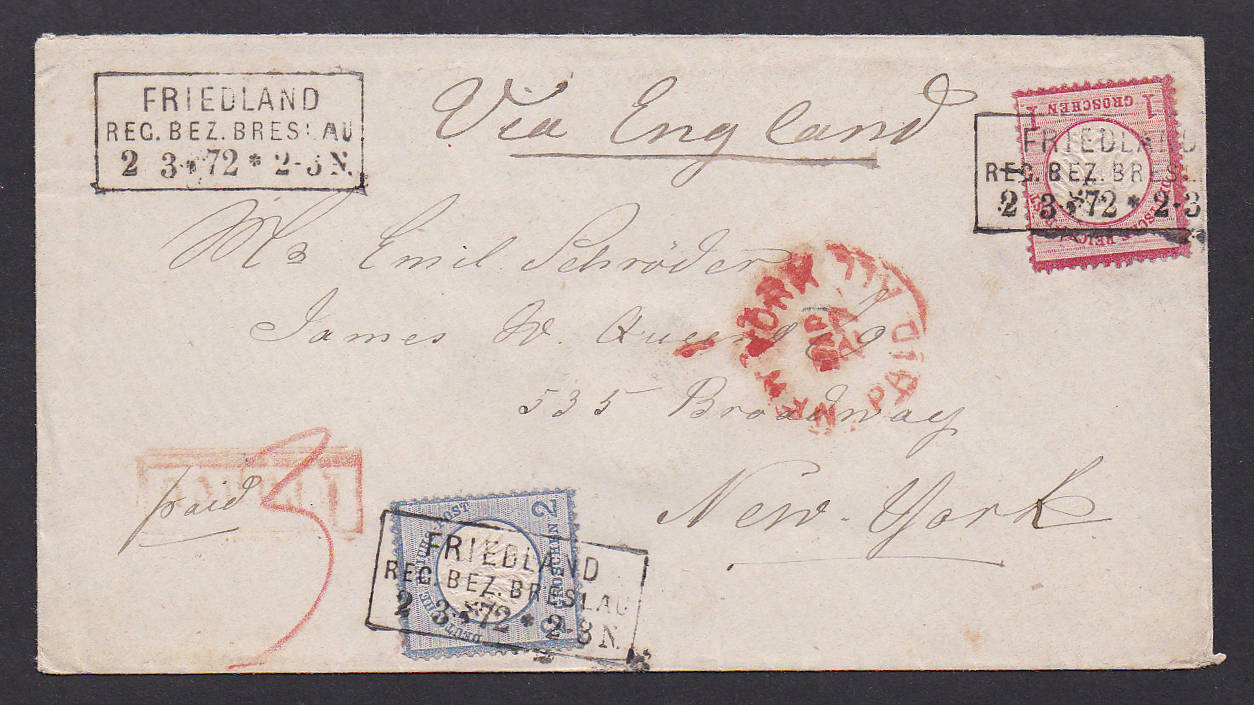 FRIEDLAND
REG. BEZ. BRESLAU
2 3 * 72 * 2-3 N.
Via England
1 GROSCHEN 1
FRIEDLAND
REG. BEZ. BRESL
2 3 * 72 * 2-3
Mr Emil Schröder
James W. Queen & Co
535 Broadway
New-York
NEW YORK PAID ALL
paid
3
2 GROSCHEN 2
FRIEDLAND
REG. BEZ. BRESLAU
2 3 * 72 * 2-3 N.